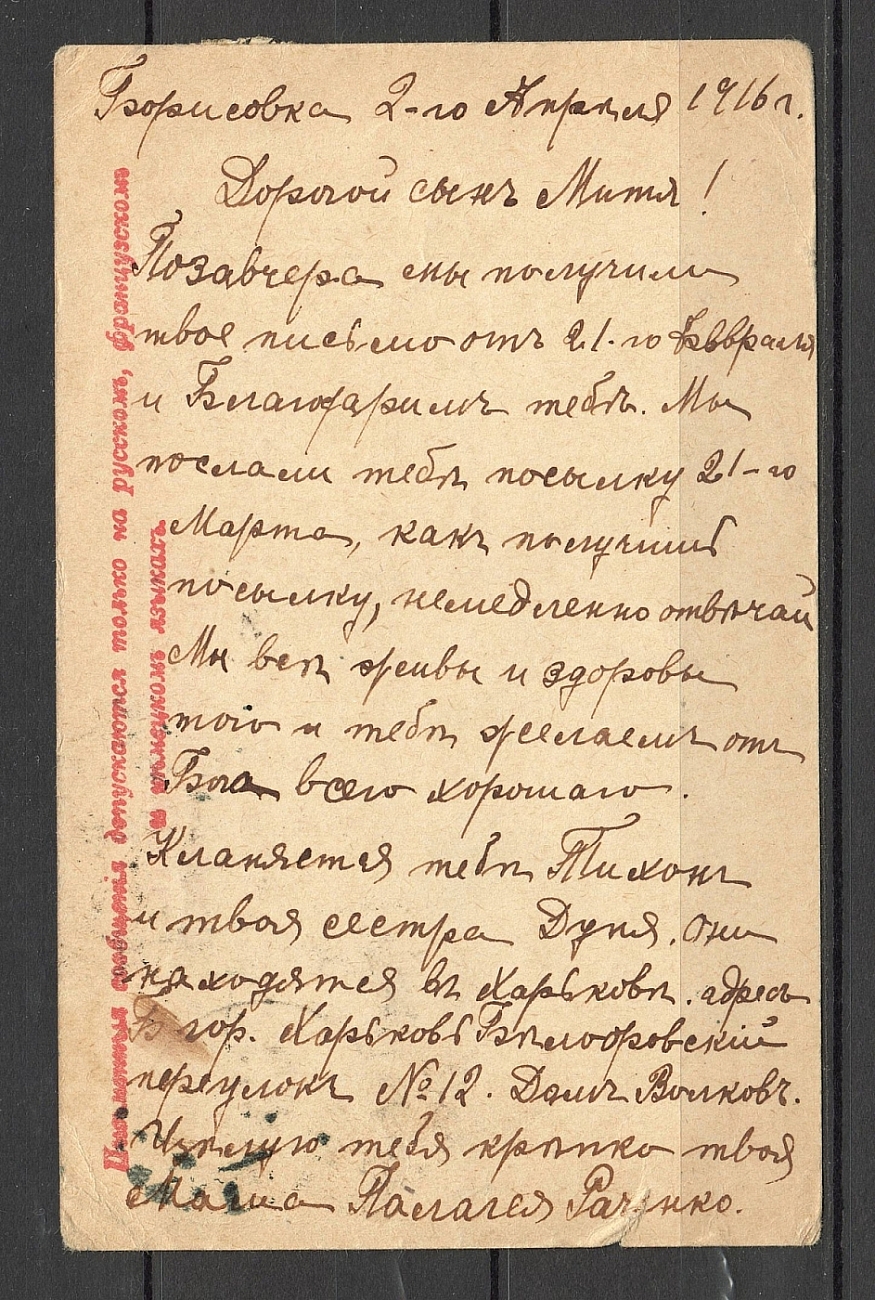 Борисовка 2-го Апрѣля 1916 г.
Дорогой сынъ Митя!
Позавчера мы получили
твое письмо отъ 21-го Февраля
и Благодаримъ тебѣ. Мы
послали тебѣ посылку 21-го
Марта, какъ получишь
посылку, немедленно отвѣчай
Мы всѣ живы и здоровы
того и тебѣ желаемъ отъ
Бога всего хорошаго.
Кланяется тебѣ Тихонъ
и твоя сестра Дуня. они
находятся въ Харьковѣ. адресъ
гор. Харьковъ
переулокъ №12. Домъ Волковъ.
Цѣлую тебя крѣпко твоя
Палагея
Письменныя сообщенія допускаются только на русскомъ, французскомъ
и нѣмецкомъ языкахъ.